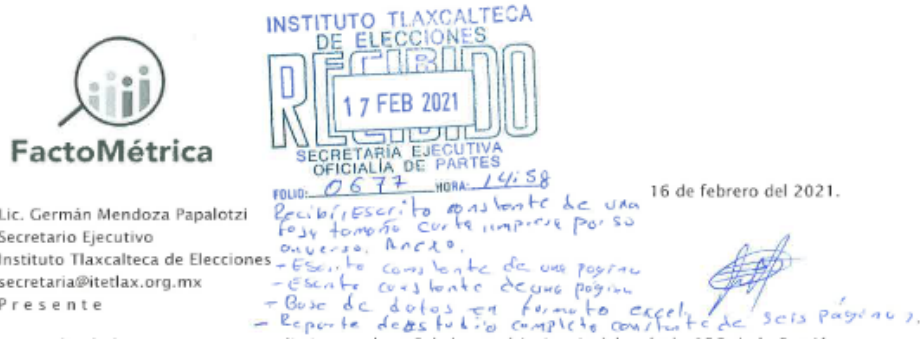 INSTITUTO TLAXCALTECA
DE ELECCIONES
RECIBIDO
17 FEB 2021
SECRETARÍA EJECUTIVA
OFICIALÍA DE PARTES
FOLIO: 0677 HORA: 14:58
FactoMétrica
16 de febrero del 2021.
Lic. Germán Mendoza Papalotzi
Secretario Ejecutivo
Instituto Tlaxcalteca de Elecciones
secretaria@itetlax.org.mx
Presente
Recibí: Escrito constante de una
foja tamaño carta impresa por su
anverso. Anexo.
- Escrito constante de una página
- Escrito constante de una página
- Base de datos en formato excel,
- Reporte de estudio completo constante de seis páginas.